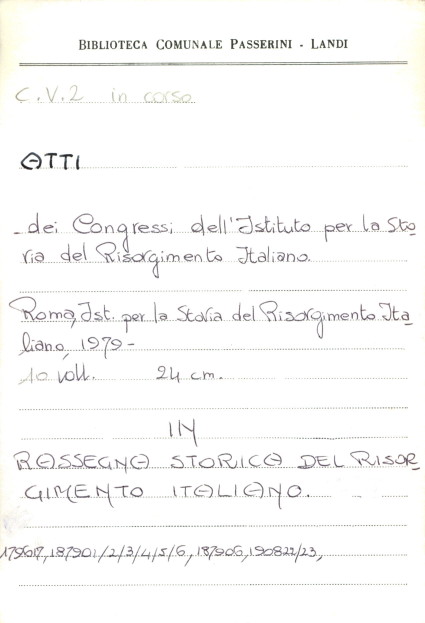 BIBLIOTECA COMUNALE PASSERINI - LANDI
C.V.2 in corso
ATTI
- dei Congressi dell'Istituto per la Sto
ria del Risorgimento Italiano.
Roma, Ist. per la Storia del Risorgimento Ita
liano, 1979-
10 voll. 24 cm.
IN
RASSEGNA STORICA DEL RISOR-
GIMENTO ITALIANO.
179617, 187901/2/3/4/5/6, 187906, 190822/23,